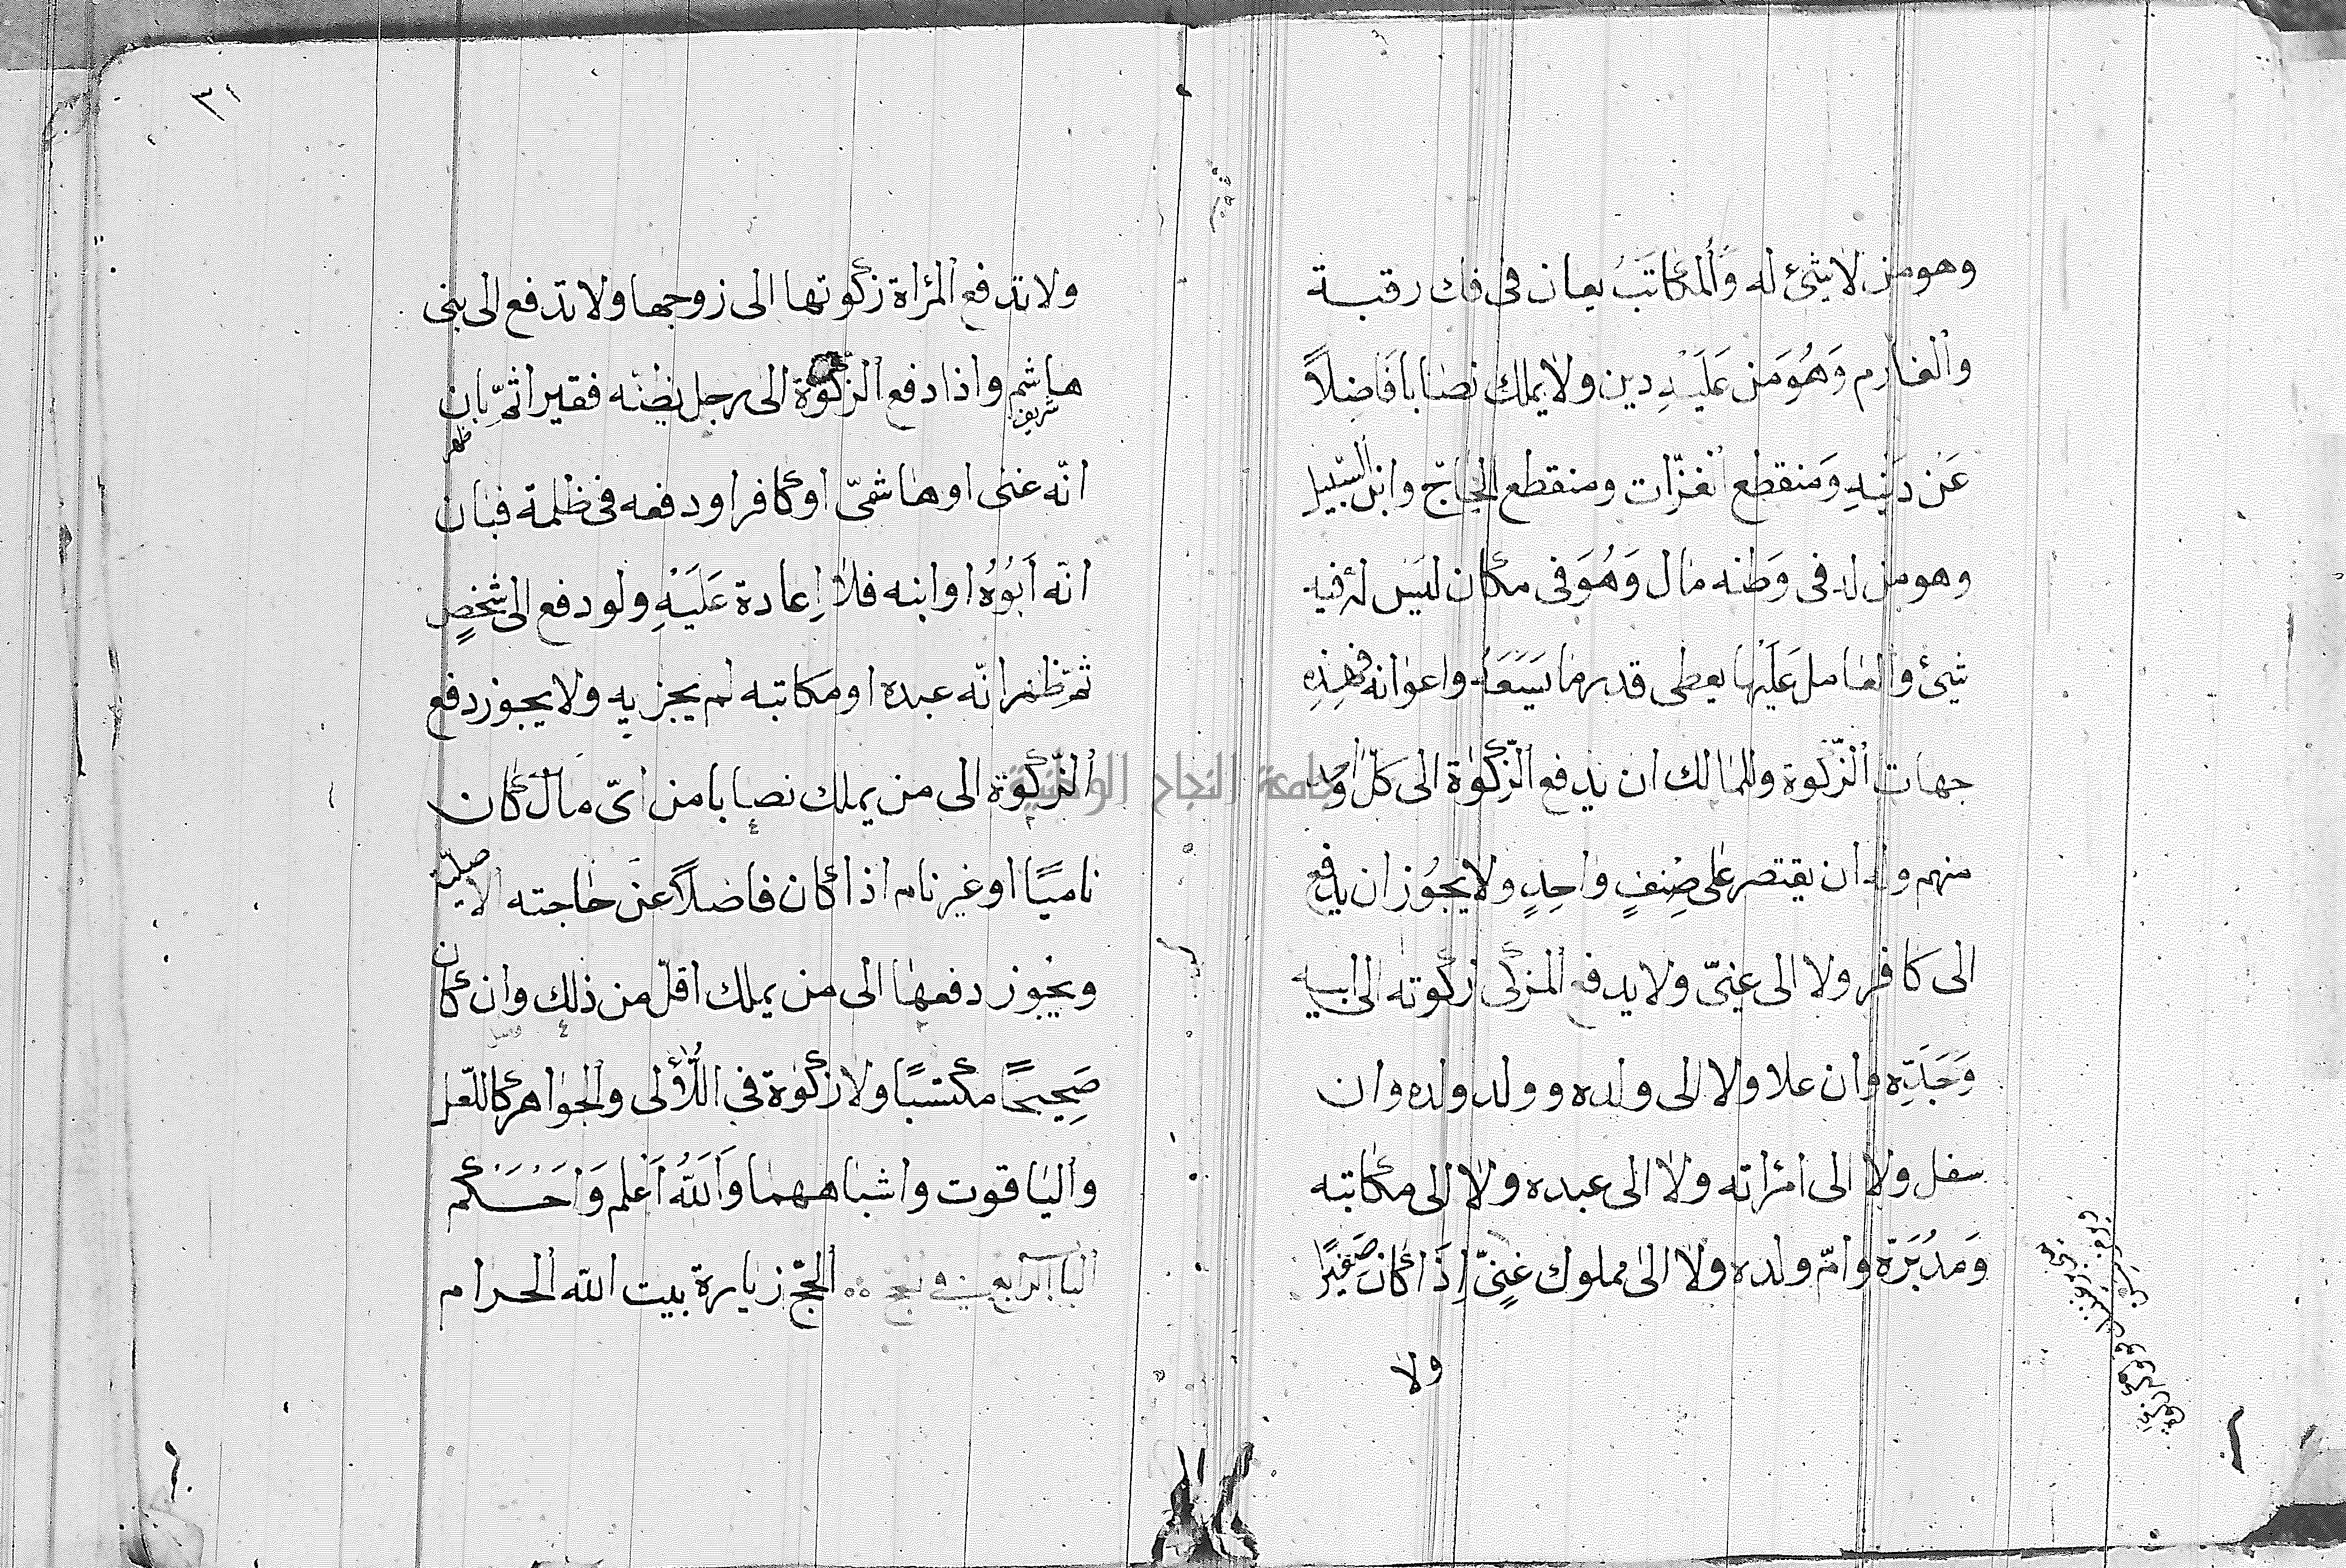 وهو من لا شئ له وَالمكاتَبُ يعان فى فك رقبة
والغارم وَهُوَ مَن عَلَيْهِ دين ولا يملك نصابا فَاضِلاً
عَن دَيْنِهِ وَمنقطع الغزات ومنقطع الحاجّ وابن السّبيل
وهو من له فى وَطنه مال وَهُوَ فى مكان ليَس لهُ فيه
شئ والعامل عَلَيْها يعطى قدر ما يسَعَهُ واعوانه فهذِهِ
جهات الزّكوة وللمالك ان يدفع الزّكوة الى كلّ واحد
منهم وله ان يقتصر على صِنفٍ واحِدٍ ولا يجُوز ان يدفع
الى كافر ولا الى غنىّ ولا يدفع المزكى زكوته الى ابيه
وَجَدّه وان علا ولا الى ولده وولد ولده وان
سفل ولا الى امرأته ولا الى عبده ولا الى مكاتبه
وَمدُبَرّه وامّ ولده ولا الى مملوك غنىّ اِذَا كان صَغيرًا
ولا
٣١
ولا تدفع المرأة زكوتها الى زوجها ولا تدفع الى بنى
هاشم واذا دفع الزكوة الى رجل يظنّه فقيرا ثمّ بان
شريف
ظهر
انّه غنى او هاشمىّ او كافر او دفعه فى ظلمة فبان
انّه اَبُوُهُ او ابنه فلا اِعادة عَلَيْهِ ولو دفع الى شخصٍ
ثمّ ظهر انّه عبده او مكاتبه لم يجز به ولا يجوز دفع
الزّكوة الى من يملك نصابا من اىّ مال كان
ناميًا او غير نام اذا كان فاضلاً عن حاجته الاصليّة
ويجوز دفعها الى من يملك اقلّ من ذلك وان كان
صَحِيحًا مكتسبًا ولا زكوة فى اللّؤلى والجواهر كاللّعل
والياقوت واشباههما وَاَللّهُ اَعْلم وَاَحْكم
الباب الرابع فى الحج الحجّ زيارة بيت الله الحرام
جامعة النجاح الوطنية